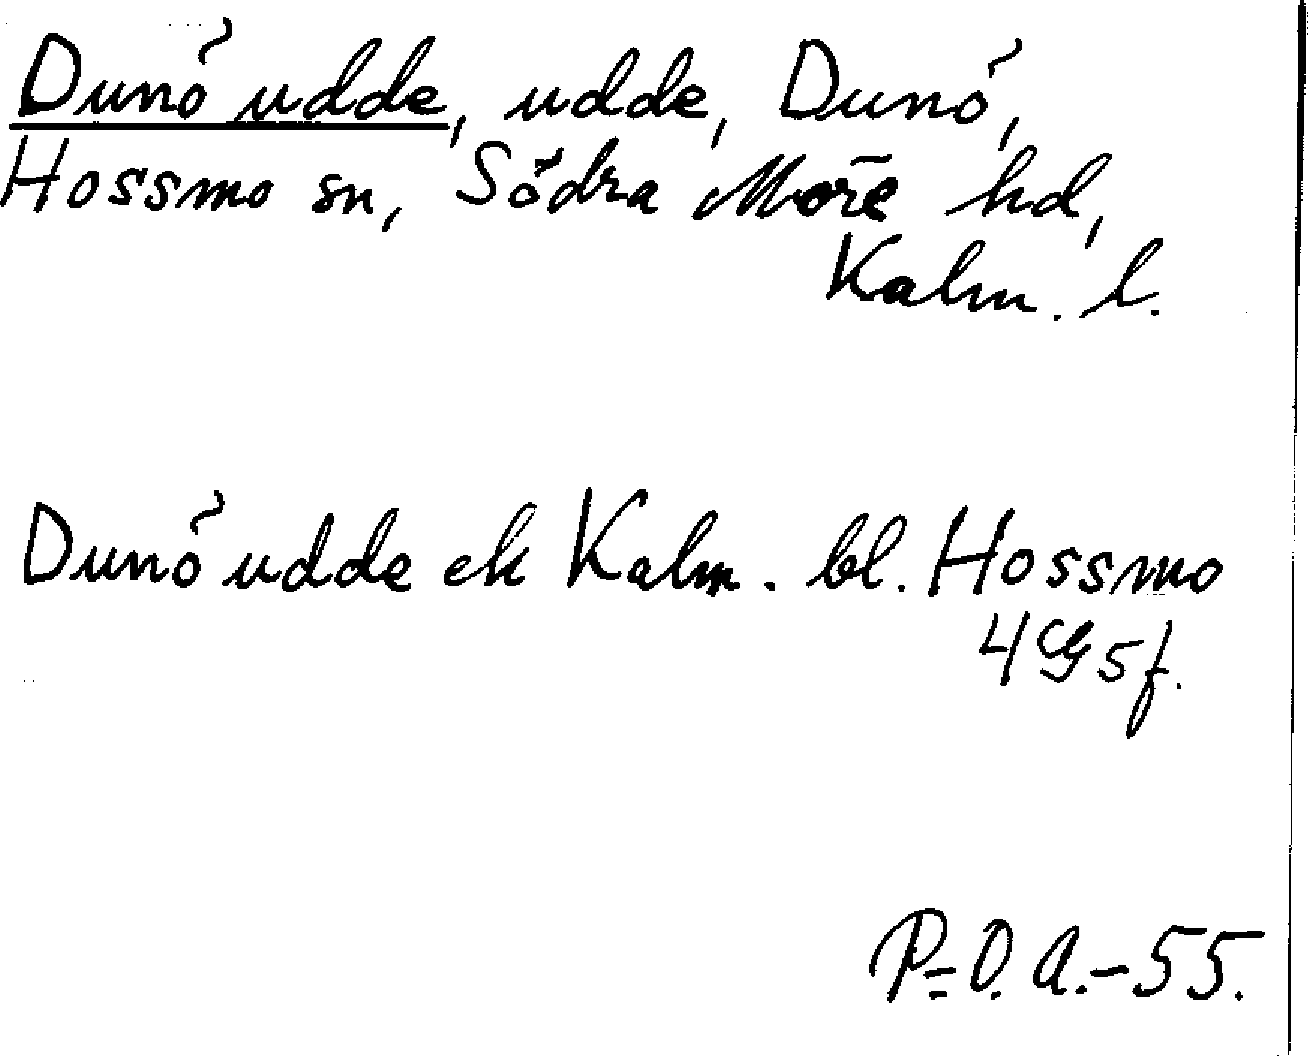 Dunö udde, udde, Dunö,
Hossmo sn, Södra Möre hd,
Kalm. l.
Dunö udde ek Kalm. bl. Hossmo
4G5f.
P-O. A.-55.